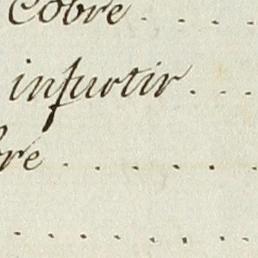 Cobre . . . .
infurtir . . .
re . . . . . .
. . . . . . . .